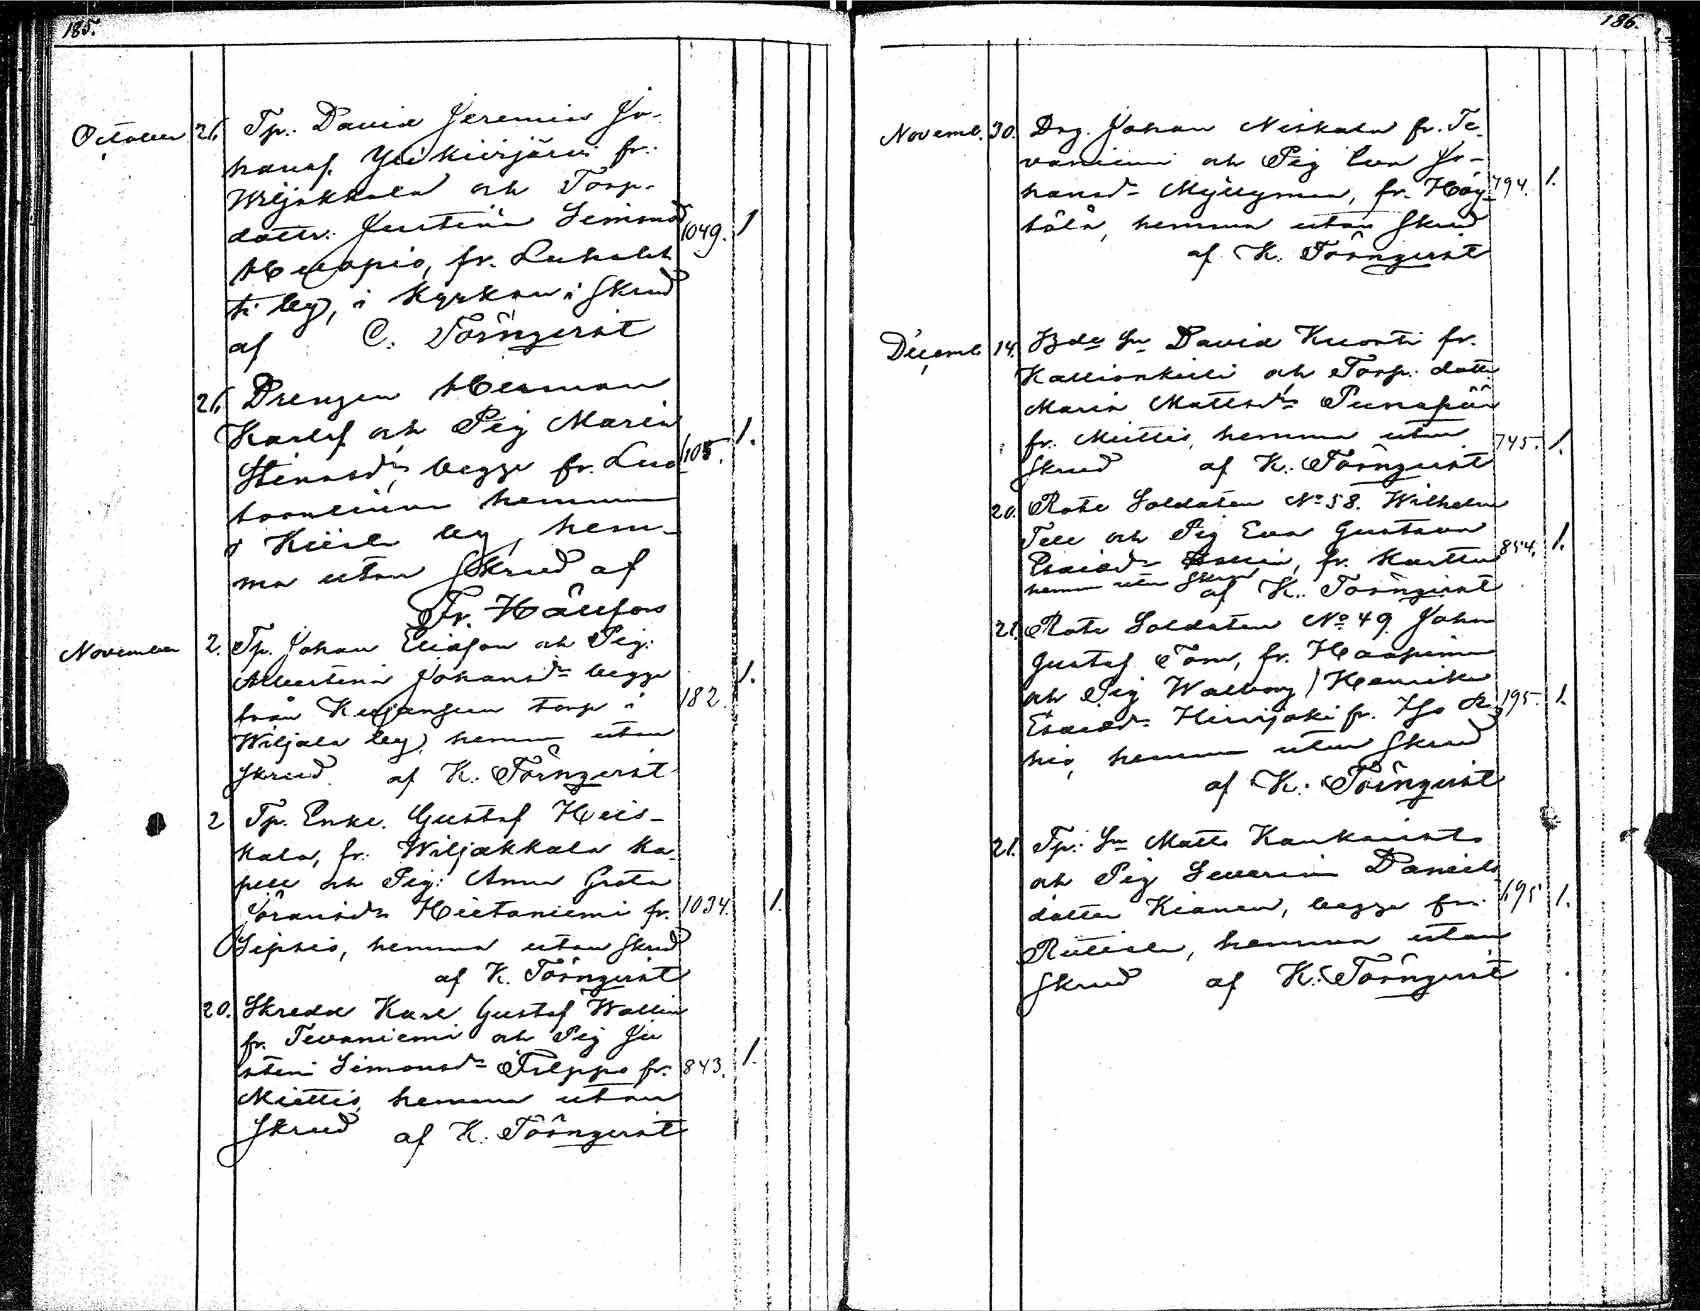 185.
October 26. Tp. David Jeremias Jo-
hansf. Yli Kierjärvi fr.
Wiljakkala och Torp.
dottr. Justina Simonsd 1049. 1
Haapio, fr. Luhalah
ti by, i Kyrkan i Skrud
af C. Törnqvist
26. Drengen Herman
Karlsf och Pig Maria
Stensdr, begge fr. Luo 105. 1.
hemma
i by, hem-
ma utan Skrud af
Fr. Hällfors
November 2. Tp. Johan Eliasson och Pig:
Albertina Johansdr begge 1.
från torp i 182.
Wiljala by, hemma utan
Skrud af K. Törnqvist
2 Tp. Enkl. Gustaf Heis-
kala, fr. Wiljakkala ka-
pell och Pig: Anna Greta
Jöransdr Hietaniemi fr. 1034. 1.
Sipsiö, hemma utan Skrud
af K. Törnqvist
20. Skredd Karl Gustaf Wallin
fr. Tevaniemi och Pig Ju
stina Simonsdr Filppo fr. 843. 1.
Miettis, hemma utan
Skrud af K. Törnqvist
186.
Novemb. 30. Drg. Johan Niskala fr. Te-
vaniemi och Pig Eva Jo-
hansdr Myllymaa, fr. Höy- 794. 1.
tölä, hemma utan Skrud
af K. Törnqvist
Decemb 14. Bde Sn David Kuonti fr.
Kallionkieli och Torp: dottr
Maria Mattsdr Punapää
fr. Miettis, hemma utan 745. 1.
Skrud af K. Törnqvist
20. Rote Soldaten No 58. Wilhelm
Tell och Pig Eva Gustava
Esaiasdr fr. Karttu 854. 1.
hemma utan Skrud af K. Törnqvist
21. Rote Soldaten No 49 John
Gustaf Torn, fr. Haapimaa
och Pig Walborg Henrika
Esaiasdr Hirvijoki fr. Iso Rö 195. 1.
hiö, hemma utan Skrud
af K. Törnqvist
21. Tp: Sn Matts Kankaristo
och Pig Severina Daniels
dotter Kianen, begge fr. 695 1.
Riitiala, hemma utan
Skrud af K. Törnqvist